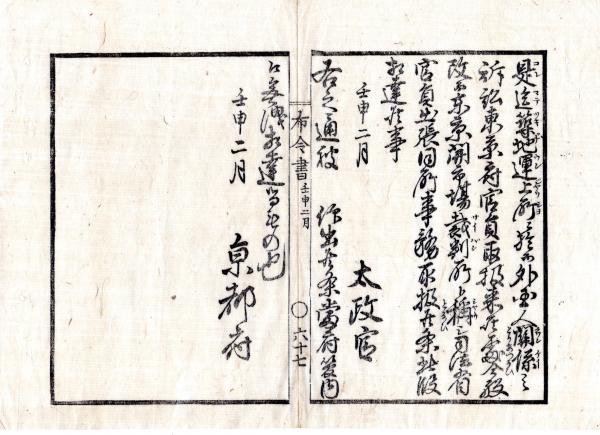 是迄築地運上所於而外国人関係之
訴訟東京府官員取扱来候處今般
改而東京開市場裁判所ト稱シ司法省
官員出張同所事務取扱候条此段
相達候事
壬申二月
太政官
右之通被 仰出候条當府管内
布令書 壬申二月 〇六十七
江無洩相達るもの也
壬申二月
京都府